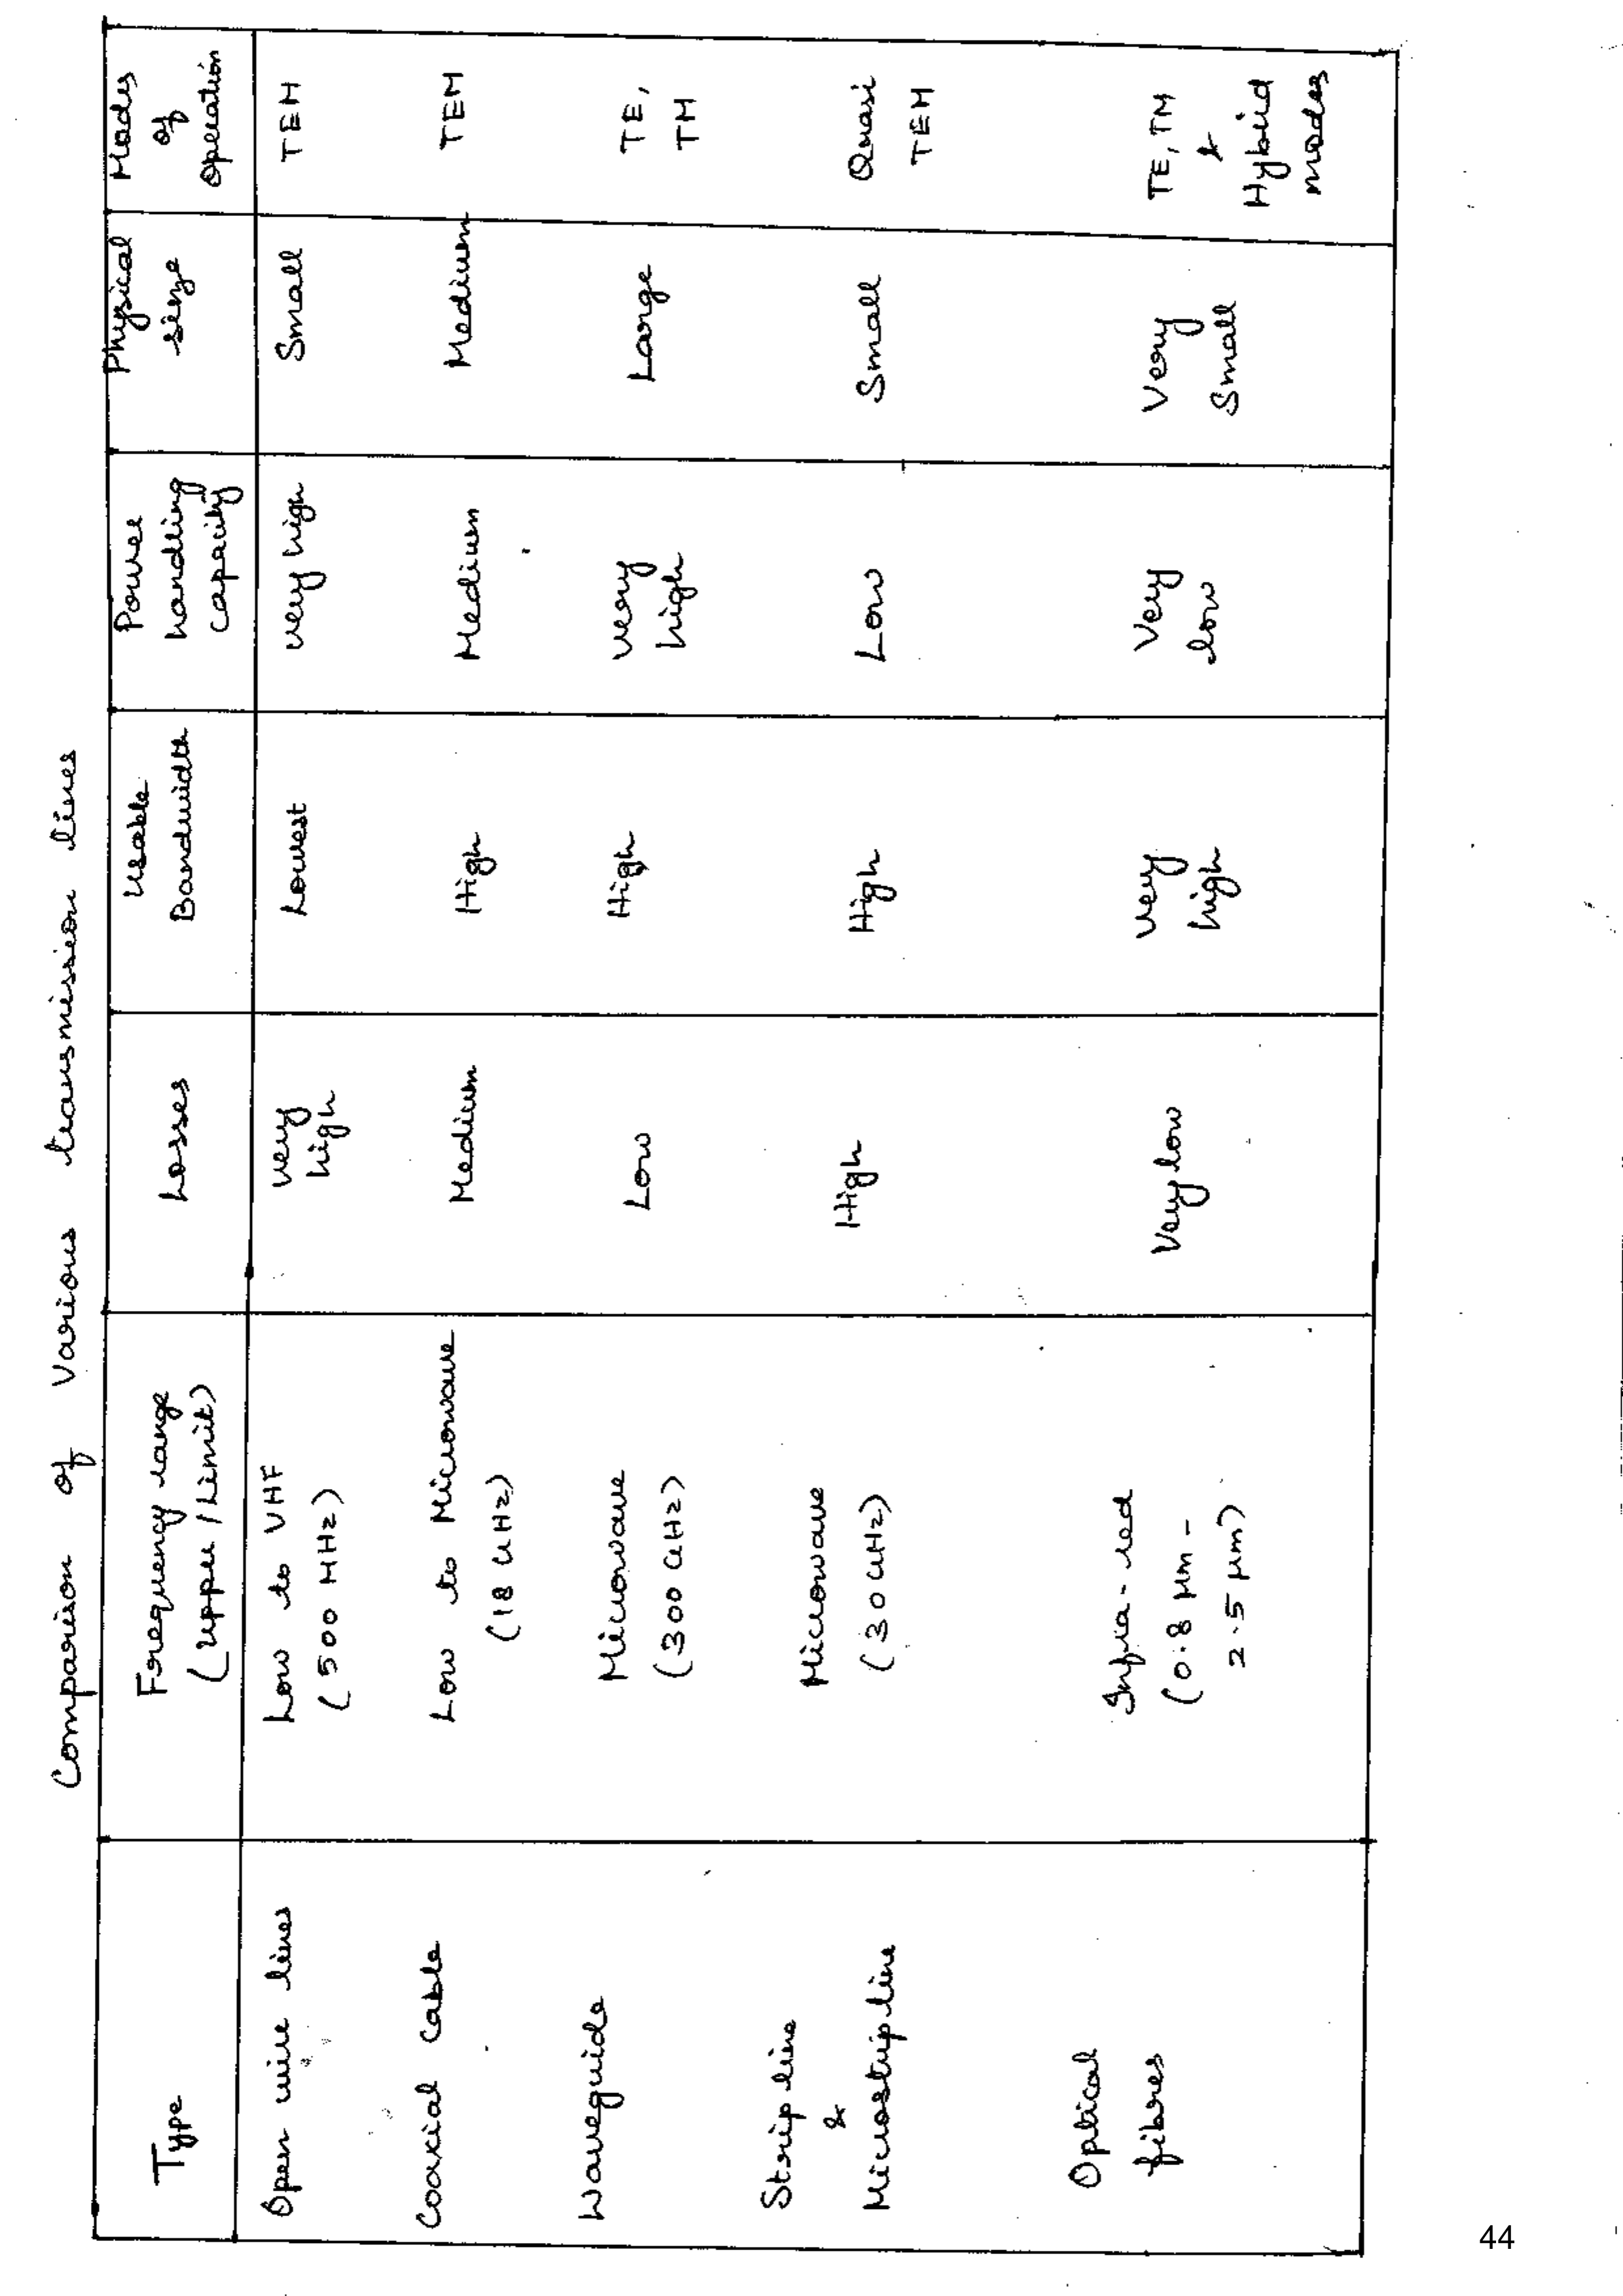 Comparison of Various transmission lines
Type
Frequency range
(upper / Limit)
Losses
Usable
Bandwidth
Power
handling
capacity
Physical
size
Modes
of
operation
Open wire lines
Low to VHF
(500 MHz)
Very
high
Lowest
Very high
Small
TEM
Coaxial Cable
Low to Microwave
(18 GHz)
Medium
High
Medium
Medium
TEM
Waveguide
Microwave
(300 GHz)
Low
High
Very
high
Large
TE,
TM
Strip line
&
Microstrip line
Microwave
(30 GHz)
High
High
Low
Small
Quasi
TEM
Optical
fibres
Infra-red
(0.8 μm -
2.5 μm)
Very low
Very
high
Very
low
Very
Small
TE, TM
&
Hybrid
modes
44